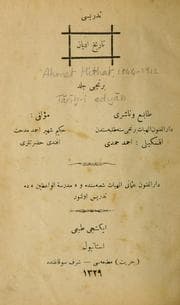 تدریسی
تاریخ ادیان
Ahmet Mithat, 1844-1912
برنجی جلد
Tārīḫ-i edyān
طابع و ناشری
مؤلفی :
دارالفنون الهیات
حکیم شهیر احمد مدحت
اقسکیلی : احمد حمدی
افندی حضرتلری
دارالفنون عثمانی الهیات شعبه‌سنده و «مدرسة الواعظین» ده
تدریس اولنور
ایکنجی طبعی
استانبول
(حریت) مطبعه‌سی — شرف سوقاغنده
١٣٢٩